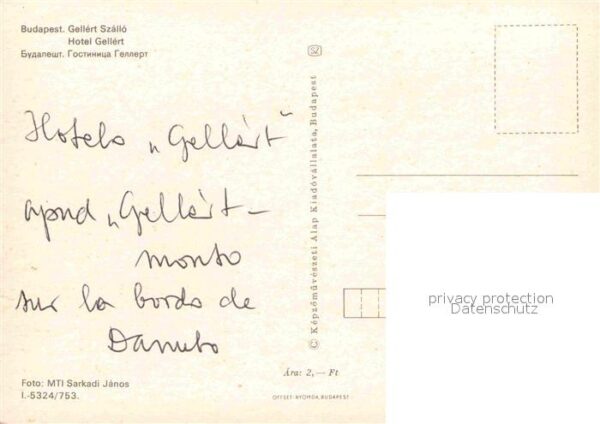 Budapest. Gellért Szálló
Hotel Gellért
Будапешт. Гостиница Геллерт
Hotelo „Gellért“
apud „Gellért-
monto
sur la bordo de
Danubo
Foto: MTI Sarkadi János
I.-5324/753.
© Képzőművészeti Alap Kiadóvállalata, Budapest
Ára: 2,— Ft
OFFSET NYOMDA, BUDAPEST
privacy protection
Datenschutz